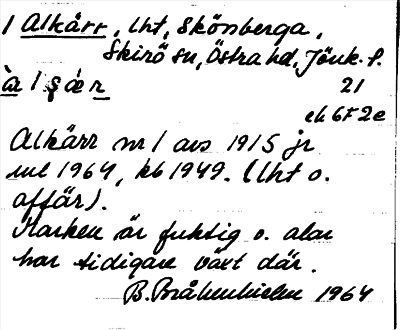 1 Alkärr, lht, Skönberga,
Skirö sn, Östra hd, Jönk. l.
àr l ş æ r 21
ek 6F2e
Alkärr nr 1 avs 1915 jr
utl 1964, kb 1949. (lht o.
affär).
Marken är fuktig o. alar
har tidigare växt där.
B. Bråkenhielm 1964